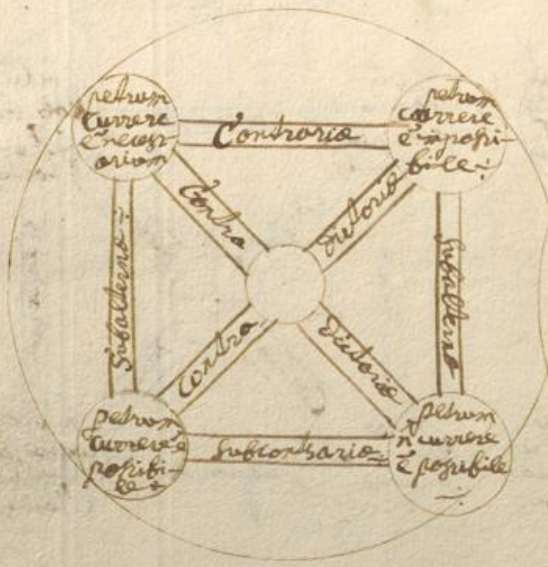 petrum
currere
ẽ necess
arium
Contrariæ
petrum
currere
ẽ imposi-
bile ÷
Contra
dictoriæ
Subalternæ ÷
Subalternæ
Contra
dictoriæ
petrum
currere ẽ
possibi-
le ÷
Subcontrariæ
petrum
ñ currere
ẽ possibile
÷